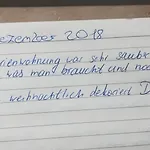 ezember 2018
erienwohnung war sehr saube
was man braucht und noc
weihnachtlich dekoriert D